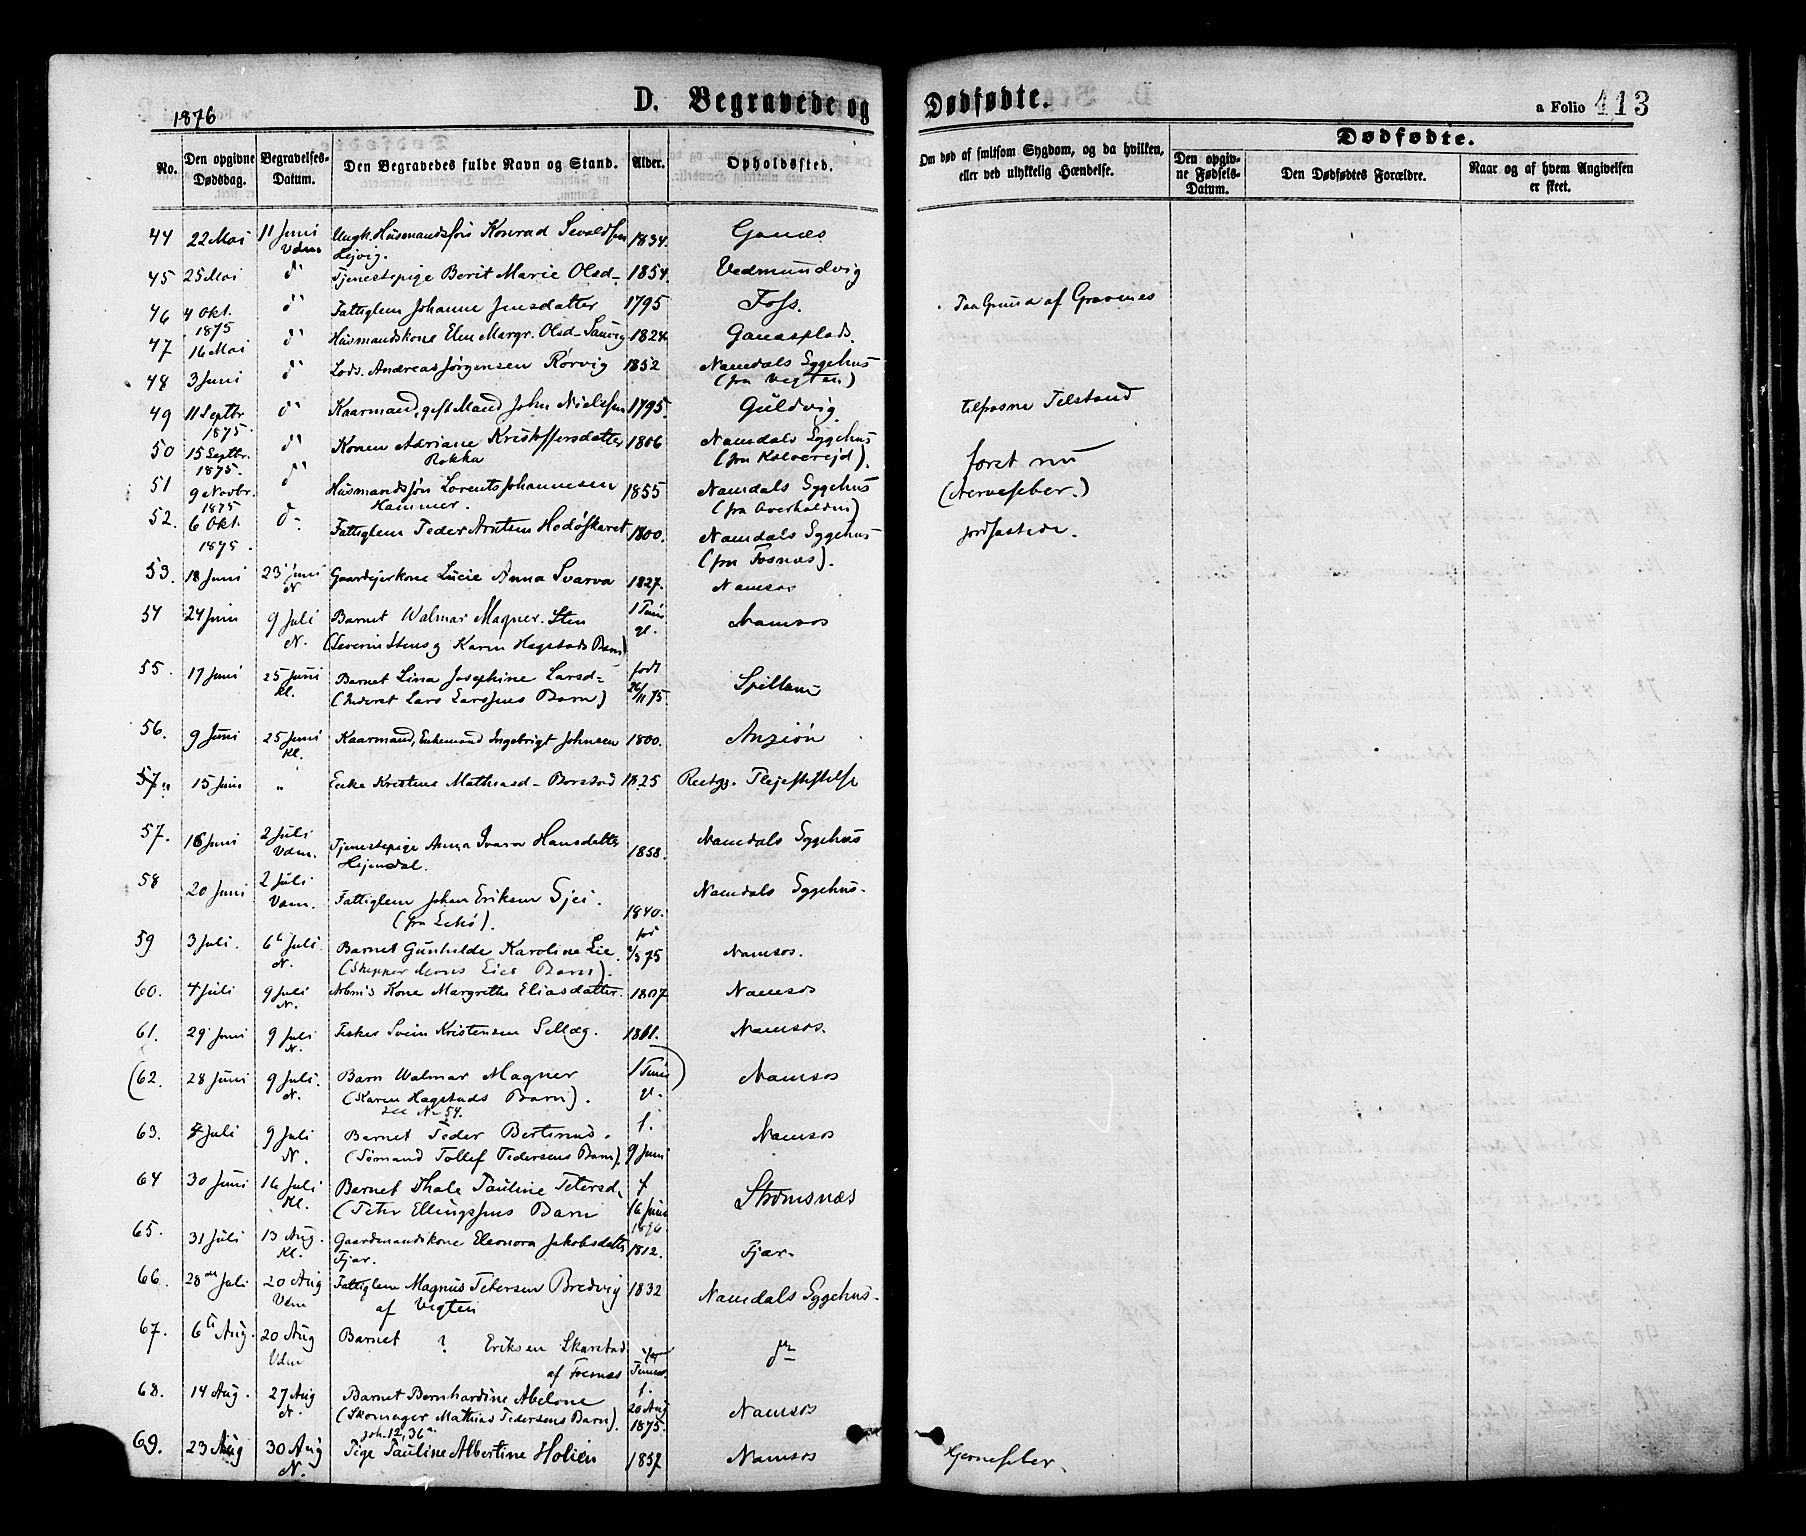 1876
D. Begravede og Dødfødte.
a Folio 413
Dødfødte.
No.
Den opgivne Dødsdag.
Begravelses-Datum.
Den Begravedes fulde Navn og Stand.
Alder.
Opholdssted.
Om død af smitsom Sygdom, og da hvilken, eller ved ulykkelig Hændelse.
Den opgivne Fødsels-Datum.
Den Dødfødtes Forældre.
Naar og af hvem Angivelsen er skeet.
44 22 Mai 11 Juni Vdm Ungk. Husmandssøn Konrad Sivaldsen 1834.
45 25 Mai d° Tjenestepige Berit Marie Olsd- 1854. Vedmundvig
46 4 Okt. 1875 d° Fattiglem Johanne Jensdatter 1795 Foss. Paa Grund af Gravenes
47 16 Mai d° Husmandskone Elen Margr. Olsd- 1824 Ganesplads.
48 3 Juni d° Lods. Andreas Jørgensen Rørvig 1852 Namdals Sygehus
(fra Vegten)
49 11 Septbr 1875. d° Kaarmand, gift Mand John Nielssen 1795. Guldvig. Tilstand
50 15 Septbr. 1875. d° Konen Adriane Kristoffersdatter 1806 Namdals Sygehus
Rokka (fra Kolvereid).
51 9 Novbr. 1875 d° Husmandssøn Lorents Johannesen 1855 Namdals Sygehus (Nervefeber.)
Hammer. (fra Overhalden)
52. 6 Okt. 1875. d°. Fattiglem Peder Arntsen Hodøskaret 1800. Namdals Sygehus jordfastede.
(fra Fosnæs).
53. 18 Juni 23 Juni N Gaardejerkone Lucie Anna Svarva 1827. Namsos
54 24 Juni 9 Juli N. Barnet Walmar Magner. Sten 1 Time gl. Namsos
(Severin Stens og Karen Hagstads Barn)
55. 17 Juni 25 Juni Kl. Barnet Lina Josephine Larsd- født 26/11 75. Spillum
(Inderst Lars Larssens Barn)
56. 9 Juni 25 Juni Kl. Kaarmand, Enkemand Ingebrigt Johnsen 1800.
57 15 Juni " Enke Kristine Mathiasd- Borstad 1825 Plejestiftelse
57. 16 Juni 2 Juli Vdm. Tjenestepige Anna Hansdatter 1858. Namdals Sygehus
58 20 Juni 2 Juli Vdm. Fattiglem Johan Eriksen 1840. Namdals Sygehus.
(fra Lekø).
59 3 Juli. 6 Juli. N. Barnet Gunhilde Karoline Lie. Namsos.
(Skipper Lies Barn).
60. 4 Juli 9 Juli N. Kone Margrethe Eliasdatter. 1807 Namsos
61. 29 Juni 9 Juli N. Fisker Svein Kristensen Sellæg. 1861. Namsos.
(62. 28 Juni 9 Juli. N. Barn Walmar Magner 1 Time gl.) Namsos
(Karen Hagstads Barn).
see No 54.
63. 4 Juli 9 Juli N. Barnet Peder Bertinus. f. 9 Juni Namsos
(Sømand Tollef Pedersens Barn).
64 30 Juni 16 Juli Kl. Barnet Thale Pauline Petersd. f 16 Juni 1876 Strømsnæs
(Peter Ellingssens Barn
65. 31 Juli 13 Aug. Kl. Gaardmandskone Eleonora Jakobsdatter 1812. Fjær-
Fjær.
66. 28de Juli 20 Aug Vdm Fattiglem Magnus Petersen Bredvig 1832 Namdals Sygehus-
af Vegten
67. 6te Aug. 20 Aug Vdm Barnet ? Eriksen Skarstad
af Fosnæs
68. 14 Aug. 27 Aug N. Barnet Bernhardine Abelone f. 20 Aug 1875. Namsos
(Skomager Mathias Pedersens Barn).
Joh. 12, 36
69. 23 Aug 30 Aug N. Pige Pauline Albertine Holien 1857 Namsos Hjernefeber.